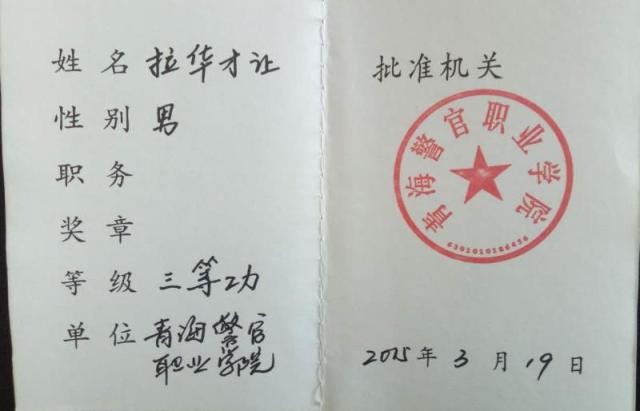 姓名 拉华才让
性别 男
职务
奖章
等级 三等功
单位 青海警官
职业学院
批准机关
青海警官职业学院
6301010186436
2015年3月19日